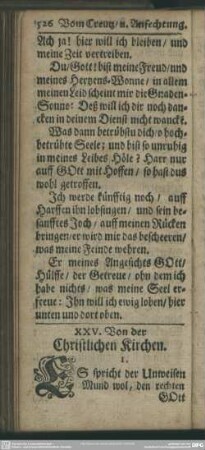 526 Vom Creutz/ u. Anfechtung.
Ach ja! hier will ich bleiben/ und
meine Zeit vertreiben.
Du/ Gott! bist meine Freud/ und
meines Hertzens-Wonne/ in allem
meinen Leid scheint mir die Gnaden-
Sonne: Deß will ich dir noch dan-
cken in deinem Dienst nicht wancken.
Was dann betrübstu dich/ o hoch-
betrübte Seele; und bist so unruhig
in meines Leibes Höle? Harr nur
auff GOtt mit Hoffen/ so hast dus
wohl getroffen.
Ich werde künfftig noch/ auff
Harffen ihn lobsingen/ und sein be-
sanfftes Joch/ auff meinen Rücken
bringen/ er wird mir das bescheeren/
was meine Feinde wehren.
Er meines Angesichts GOtt/
Hülffe/ der Getreue/ ohn dem ich
habe nichts/ was meine Seel er-
freue: Ihn will ich ewig loben/ hier
unten und dort oben.
XXV. Von der
Christlichen Kirchen.
1.
ES spricht der Unweisen
Mund wol, den rechten
GOtt